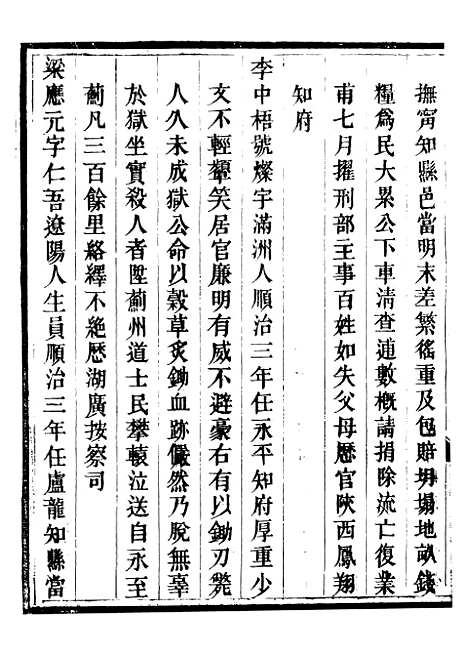 撫甯知縣邑當明末差繁徭重及包賠坍塌地畝錢
糧爲民大累公下車淸查逋數槪請捐除流亡復業
甫七月擢刑部主事百姓如失父母歷官陝西鳳翔
知府
李中梧號燦宇滿洲人順治三年任永平知府厚重少
文不輕顰笑居官廉明有威不避豪右有以鋤刃斃
人久未成獄公命以穀草炙鋤血跡儼然乃脫無辜
於獄坐實殺人者陞薊州道士民攀轅泣送自永至
薊凡三百餘里絡繹不絕歷湖廣按察司
梁應元字仁吾遼陽人生員順治三年任盧龍知縣當